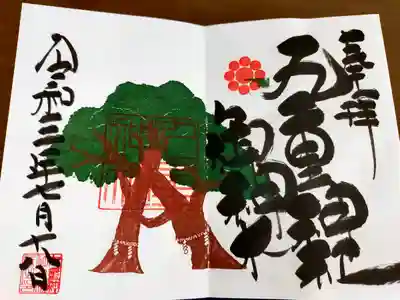 奉拝
五 神社
御神木
令和三年七月十八日